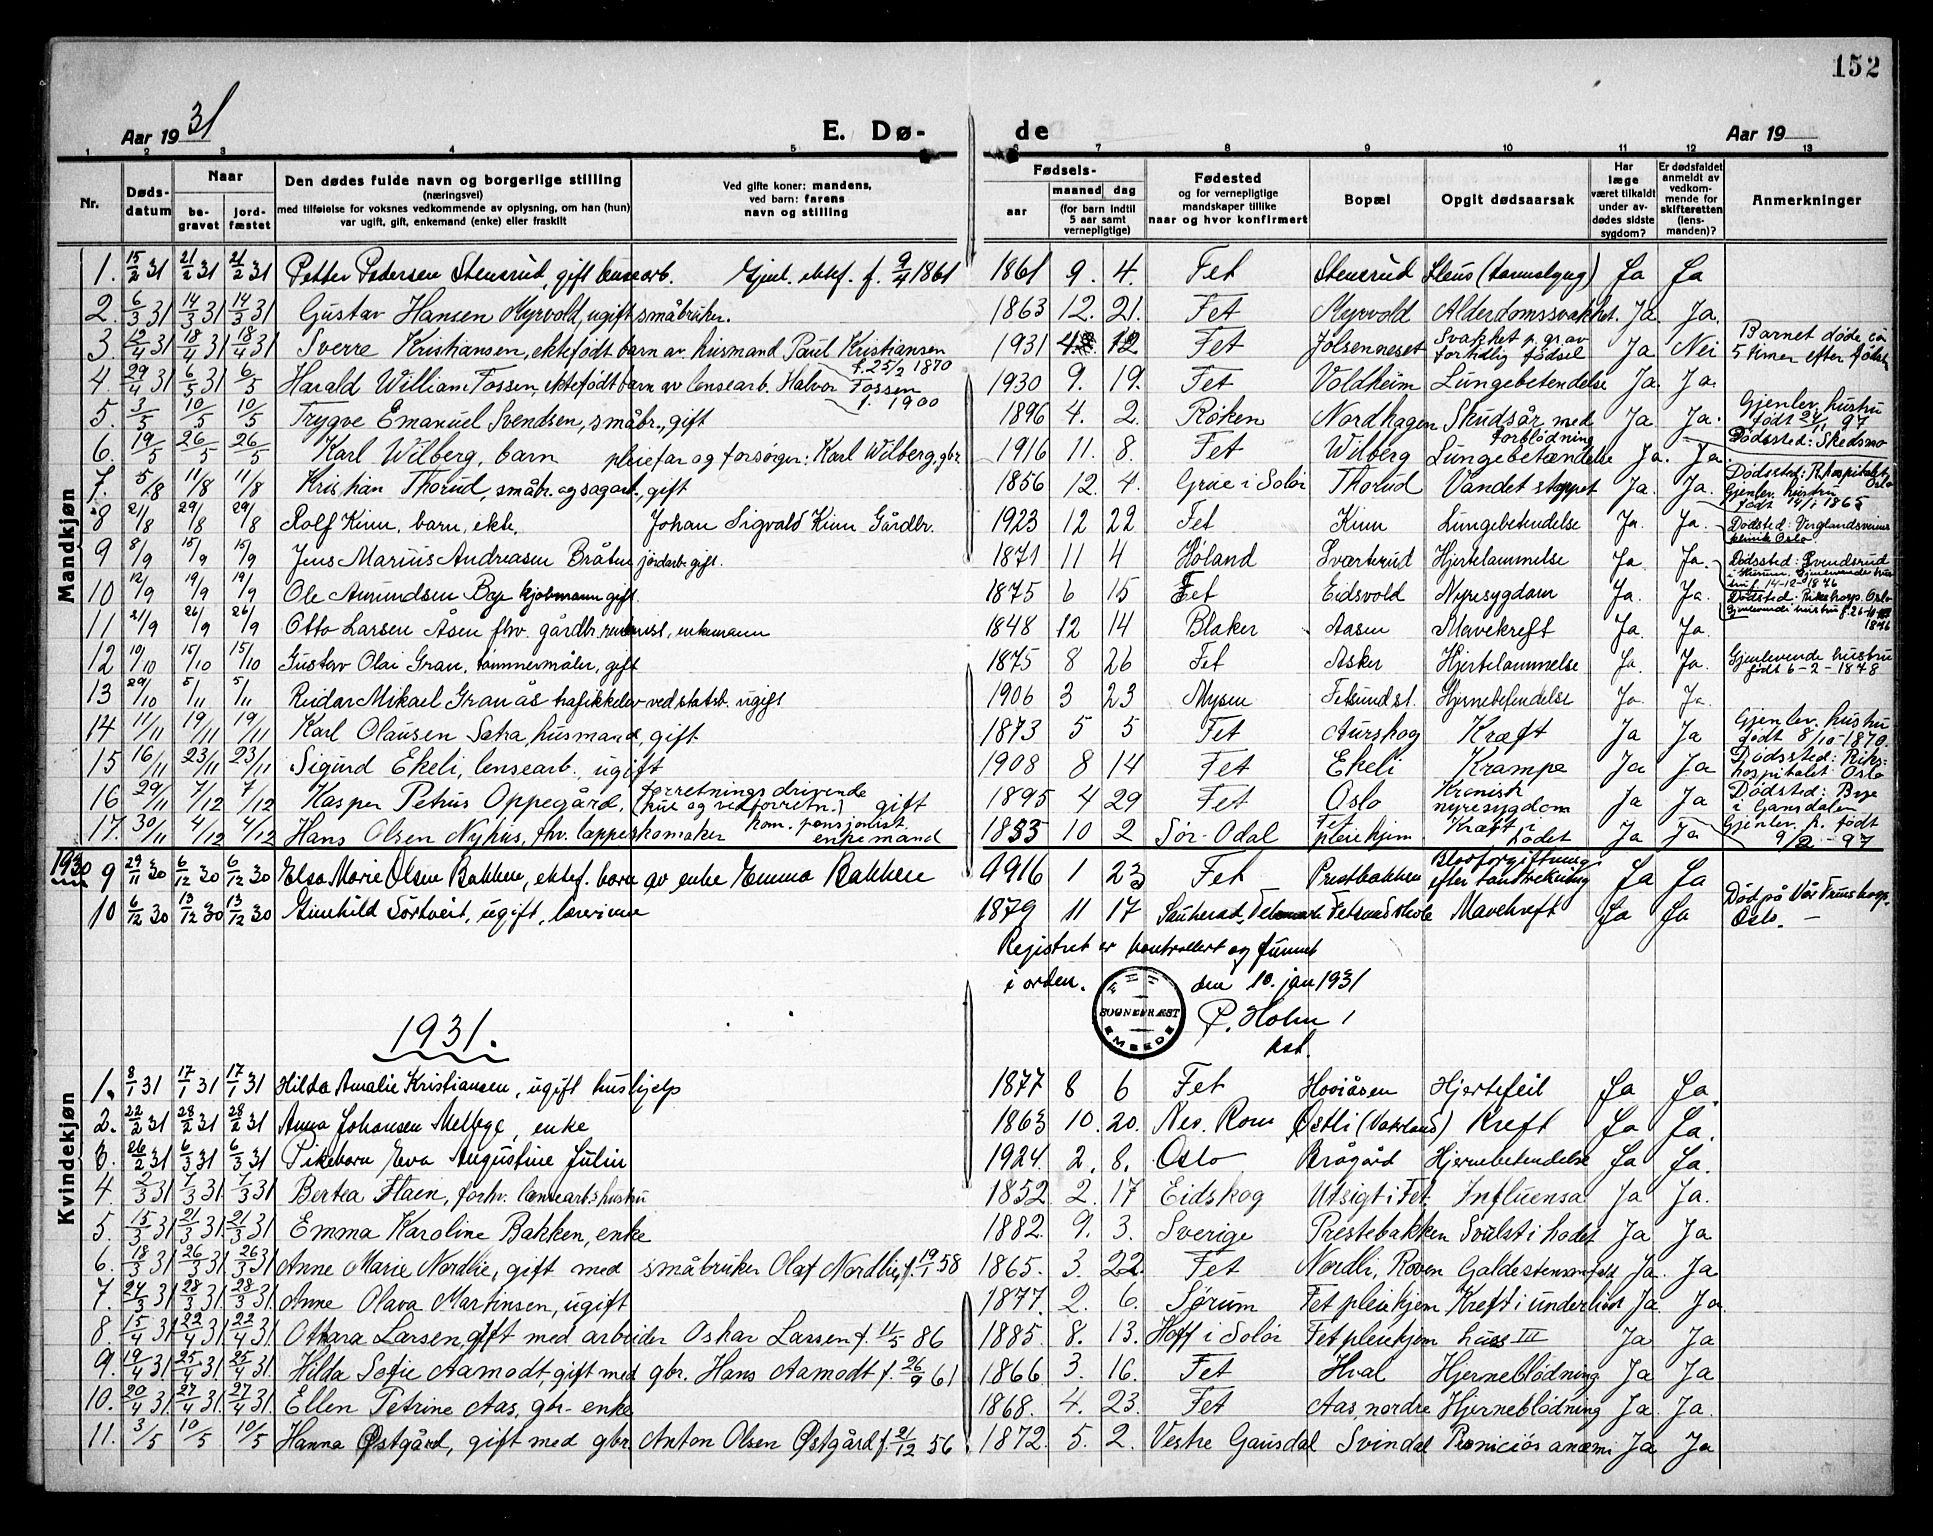 152
Aar 1931 E. Dø- de Aar 19
1 2 3 4 5 6 7 8 9 10 11 12 13
Nr.
Døds-
datum
Naar
be-
gravet
jord-
fæstet
Den dødes fulde navn og borgerlige stilling
(næringsvei)
med tilføielse for voksnes vedkommende av oplysning, om han (hun)
var ugift, gift, enkemand (enke) eller fraskilt
Ved gifte koner: mandens,
ved barn: farens
navn og stilling
Fødsels-
aar
maaned dag
(for barn indtil
5 aar samt
vernepligtige)
Fødested
og for vernepligtige
mandskaper tillike
naar og hvor konfirmert
Bopæl
Opgit dødsaarsak
Har
læge
været tilkaldt
under av-
dødes sidste
sygdom?
Er dødsfaldet
anmeldt av
vedkom-
mende for
skifteretten
(lens-
manden)?
Anmerkninger
Mandkjøn
1. 15/2 31 21/2 31 21/2 31 Petter Pedersen Stenerud, gift lensearb. Gjenl. ektef. f. 9/4 1861 1861 9. 4. Fet Stenerud Ileus (tarmslyng) Ja Ja
2. 6/3 31 14/3 31 14/3 31 Gustav Hansen Myrvold, ugift småbruker. 1863 12. 21. Fet Myrvold Alderdomssvakhet. Ja. Ja.
3. 12/4 31 18/4 31 18/4 31 Sverre Kristiansen, ektefødt barn av husmand Paul Kristiansen 1931 12 Fet Jølsenneset Svakhet p. gr. av forhdlig fødsel Ja Nei Barnet døde ca 5 timer efter fødsel
f. 25/2 1870
4. 29/4 31 6/5 31 6/5 Harald William Fossen, ektefødt barn av lensearb. Halvor Fossen 1930 9. 19. Fet Voldheim Lungebetendelse Ja. Ja.
f. 1900
5. 3/5 10/5 10/5 Trygve Emanuel Svendsen, småbr., gift 1896 4. 2. Røken Nordhagen Skudsår med forblødning Ja Ja. Gjenlev. hustru født 24/11 97
6. 19/5 26/5 26/5 Karl Wilberg, barn pleiefar og forsørger: Karl Wilberg, gbr. 1916 11. 8. Fet Wilberg Lungebetændelse Ja. Ja. Dødssted: Skedsmo
7. 5/8 11/8 11/8 Kristian Thorud, småbr. og sagarb., gift 1856 12. 4. Grue i Solør Thorud Vandet stoppet Ja. Ja. Dødssted: Rikshospitalet, Oslo Gjenlev. hustru født 14/1 1865
8 21/8 29/8 29/8 Rolf Kinn, barn, ekte, Johan Sigvald Kinn Gårdbr. 1923 12 22 Fet Kinn Lungebetendelse Ja. Ja. Dødsted: Verglandsveiens klinik Oslo
9 8/9 15/9 15/9 Jens Marius Andreasen Bråten jordarb. gift. 1871 11 4 Høland Sværterud Hjertelammelse Ja. Ja. Dødssted: Svendsrud i Hurum. Gjenlevende hustru f. 14-12-1876
10 12/9 19/9 19/9 Ole Amundsen Bye kjøbmann gift 1875 6 15 Fet Eidsvold Nyresygdom Ja. Ja. Dødsted: Rikshosp. Oslo Gjenlevende hustru f. 26-11 1876
11 21/9 26/9 26/9 Otto Larsen Åsen fhv. gårdbr. enkemann 1848 12 14 Blaker Aasen Mavekreft Ja. Ja.
12 10/10 15/10 15/10 Gustav Olai Gran, tømmermåler, gift 1875 8 26 Fet Asker Hjertelammelse Ja. Ja. Gjenlevende hustru født 6-2-1878
13 29/10 5/11 5/11 Reidar Mikael Granås trafikkelev ved statsb. ugift 1906 3 23 Mysen Fetsund st. Hjernebetendelse Ja. Ja.
14 11/11 19/11 19/11 Karl Olausen Sætra, husmand, gift 1873 5 5 Fet Aurskog Kræft Ja Ja Gjenlev. hustru født 8/10-1870.
15 16/11 23/11 23/11 Sigurd Ekeli, lensearb., ugift 1908 8 14 Fet Ekeli Krampe Ja Ja Dødssted: Rikshospitalet Oslo
16 29/11 7/12 7/12 Kasper Petrus Oppegård, forretningsdrivende (hue og vedforretn.) gift 1895 4 29 Fet Oslo Kronisk nyresygdom Ja Ja Dødsted: Bye i Gansdalen Gjenlev. h. født 9/2-97
17. 30/11 4/12 4/12 Hans Olsen Nyhus, fhv. lappeskomaker kom. pensjonist enkemand 1853 10 2 Sør-Odal Fet pleiehjem Kræft i hodet Ja Ja
1930 9 29/11 30 6/12 30 6/12 30 Elsa Marie Olsen Bakken, ektef. barn av enke Emma Bakken 1916 1 23 Fet Prestbakken Blodforgiftning efter tandtrekning Ja Ja
10 6/12 30 13/12 30 13/12 30 Gunhild Sørtveit, ugift, lærerinne 1879 11 17 Sauherad, Telemark Fetsund skole Mavekreft Ja Ja Død på Vår Frues hosp. Oslo. –
Registret er kontrollert og funnet
i orden. den 10. jan 1931
SOGNEPRÆST EMBEDE
P. Holm
kst.
1931.
Kvindekjøn
1. 8/1 31 17/1 31 17/1 31 Hilda Amalie Kristiansen, ugift hushjelp 1877 8 6 Fet Hoviåsen Hjertefeil Ja Ja.
2. 22/2 31 28/2 31 28/2 31 Anna Johansen Melbye, enke 1863 10. 20. Nes. Rom Østli (Vahrland) Kreft Ja Ja.
3. 26/2 31 6/3 31 6/3 31 Pikebarn Eva Augustine Julin 1924. 2. 8. Oslo Brågård Hjernebetendelse Ja Ja.
4. 2/3 31 7/3 31 7/3 31 Bertea Flaen, forhv. lensearb.s hustru 1852. 2. 17 Eidskog Utsigt i Fet. Influensa Ja Ja.
5. 15/3 31 21/3 31 21/3 31 Emma Karoline Bakken, enke 1882. 9. 3. Sverige Prestebakken Svulst i hodet Ja Ja
6. 18/3 31 26/3 31 26/3 31 Anne Marie Nordlie, gift med småbruker Olaf Nordlie f. 19/1 58 1865. 3. 22. Fet Nordli, Roven Galdestensanfald Ja. Ja
7. 24/3 31 28/3 31 28/3 31 Anne Olava Martinsen, ugift 1877. 2. 6. Sørum Fet pleiehjem Kreft i underlivet Ja. Ja.
8. 15/4 31 22/4 31 22/4 31. Othara Larsen, gift med arbeider Oskar Larsen f. 11/5 86 1885. 8. 13. Hoff i Solør Fet pleiehjem lues III Ja Ja
9. 19/4 31 25/4 31 25/4 31. Hilda Sofie Aamodt, gift med gbr. Hans Aamodt f. 26/9 61 1866. 3. 16. Fet Hval Hjerneblødning Ja Ja
10. 20/4 31 27/4 31 27/4 31. Ellen Petrine Aas, gbr- enke 1868. 4. 23. Fet Aas, nordre Hjerneblødning Ja. Ja.
11. 3/5 10/5 10/5 Hanna Østgård, gift med gbr. Anton Olsen Østgård f. 21/12 56 1872. 5. 2. Vestre Gausdal Svindal Perniciøs anæmi Ja Ja